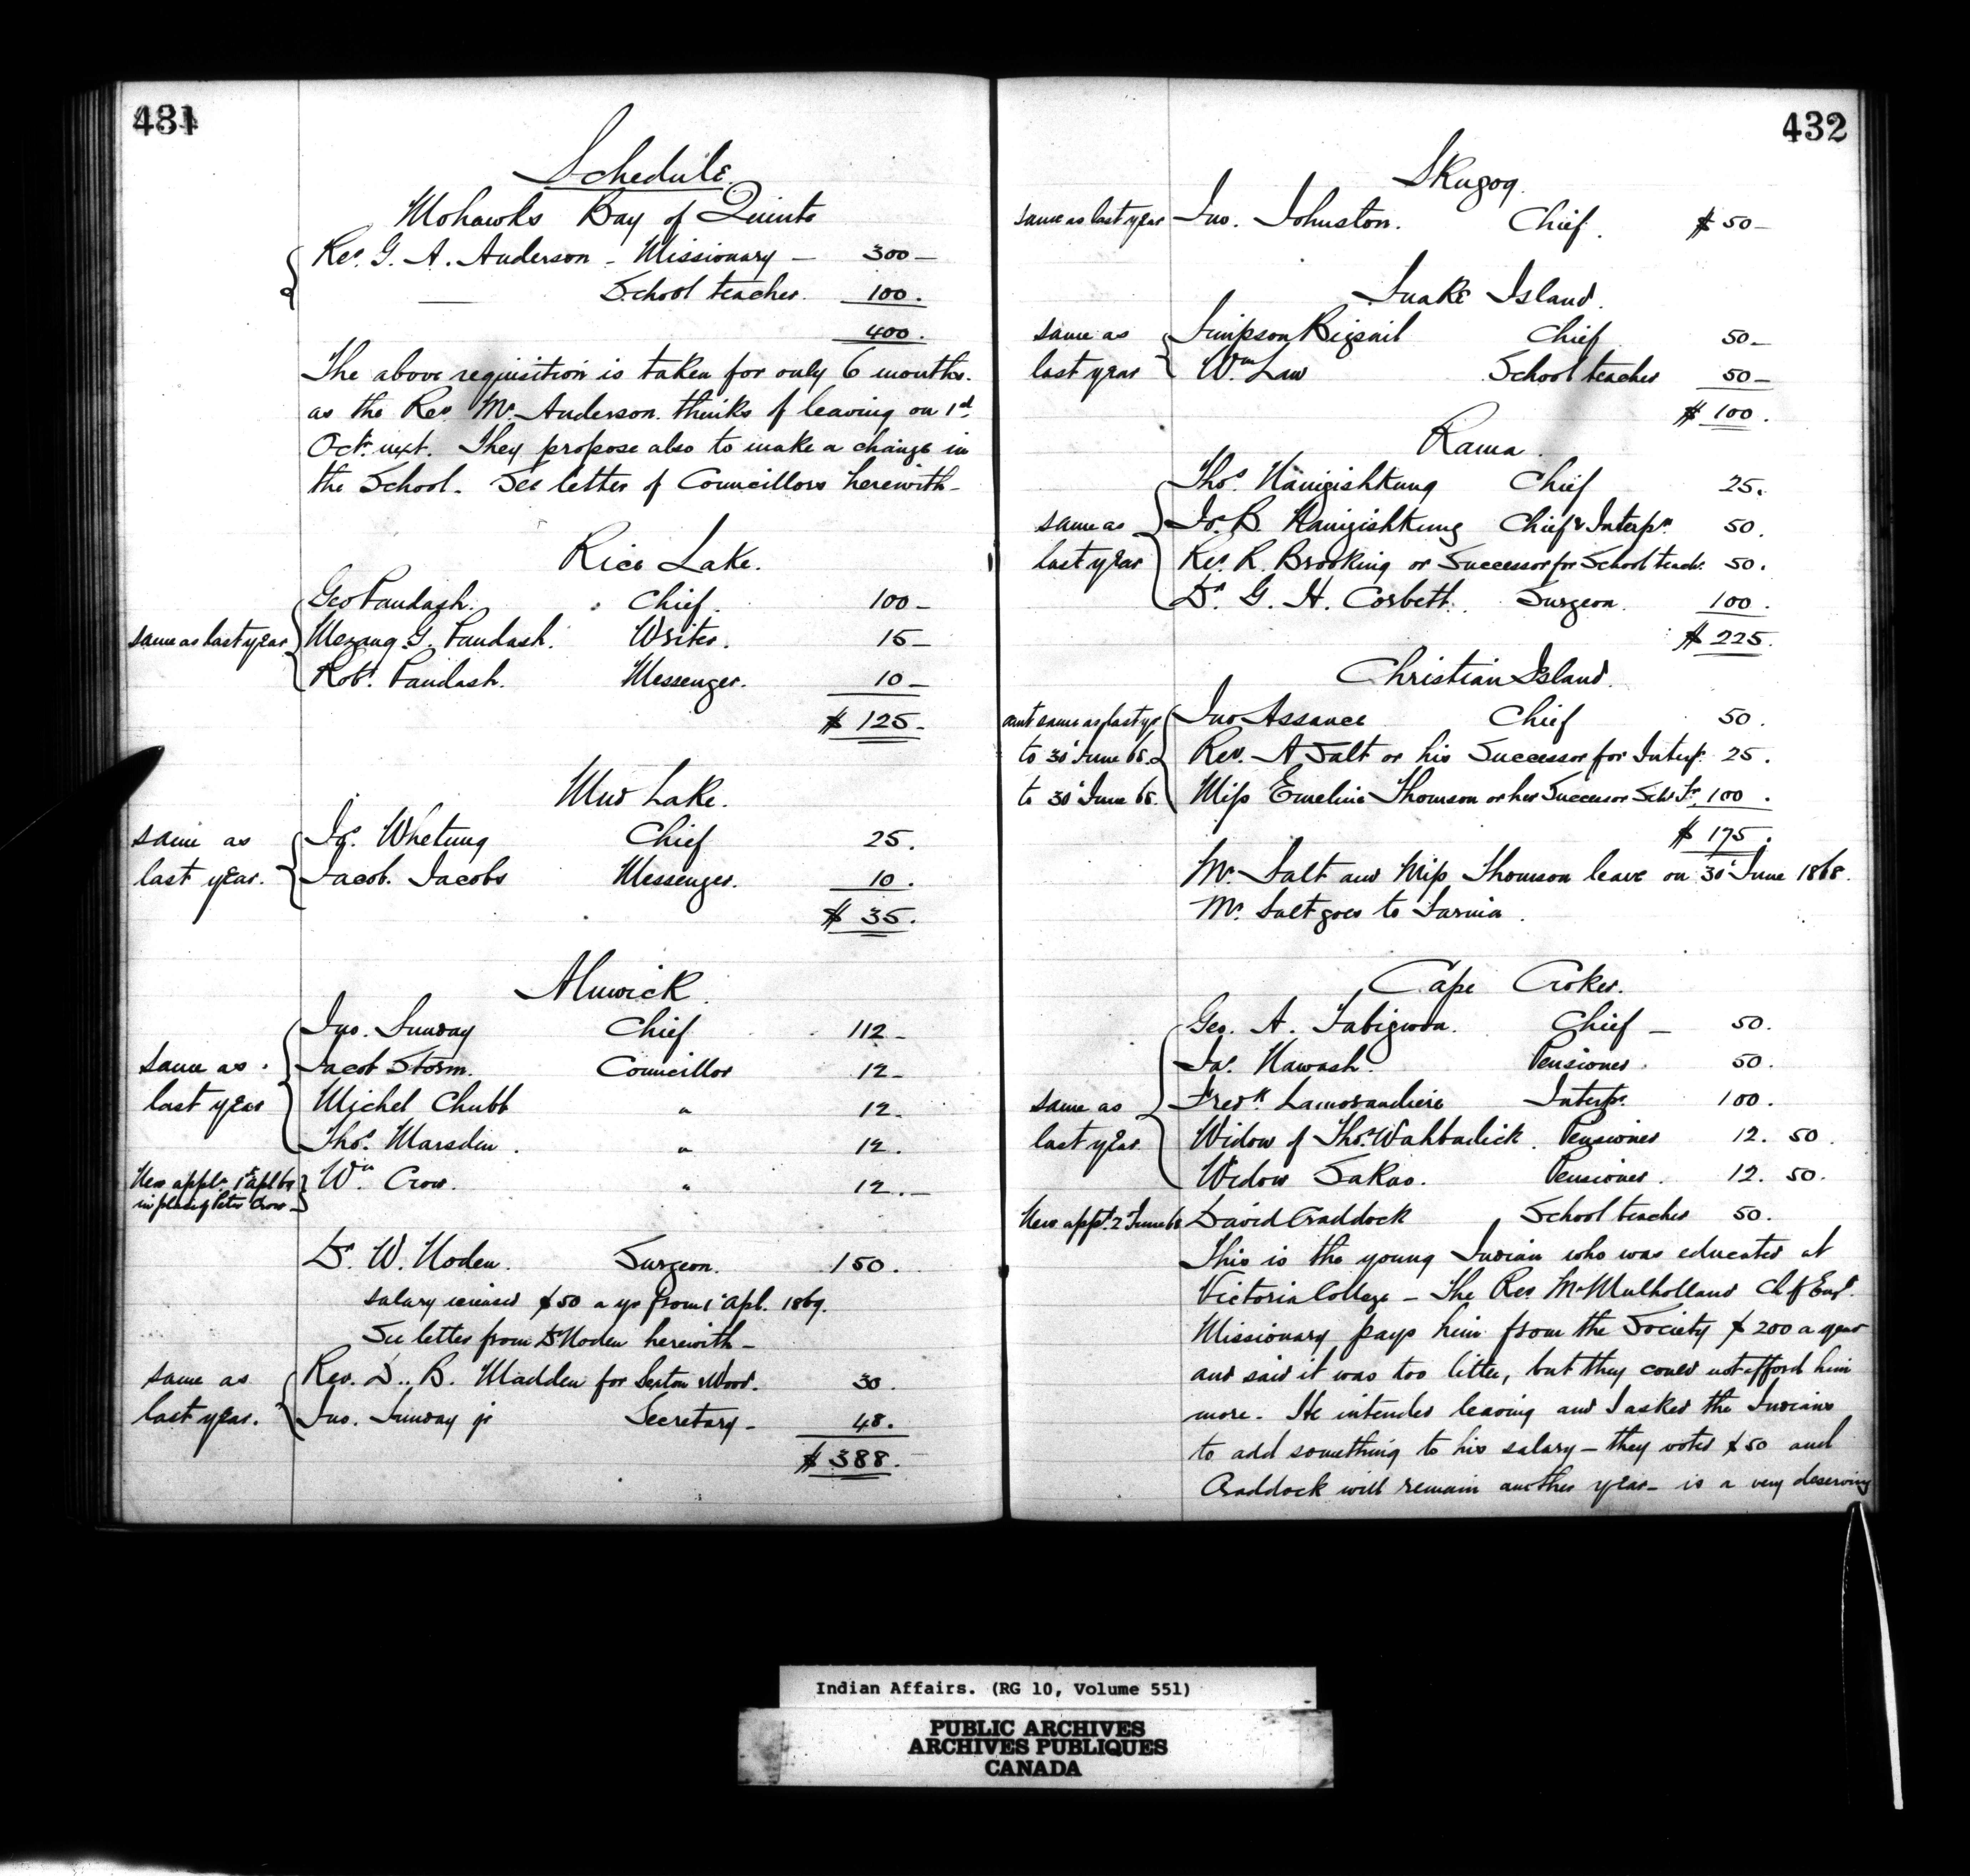 431
Schedule
Mohawks Bay of Quinte
Rev. G. A. Anderson - Missionary - 300 -
School teacher. 100.
400.
The above requisition is taken for only 6 months.
as the Rev. Mr. Anderson thinks of leaving on 1st
Octr. next. They propose also to make a change in
the School. See letter of Councillors herewith -
Rice Lake.
same as last year
Geo Paudash. Chief. 100 -
Mezang G. Paudash. Writer. 15 -
Robt. Paudash. Messenger. 10 -
$ 125 -
Mud Lake.
same as last year.
Jos. Whetung Chief 25.
Jacob. Jacobs Messenger. 10.
$ 35.
Alnwick.
same as last year
Jno. Sunday Chief 112 -
Jacob Storm. Councillor 12 -
Michel Chubb " 12.
Thos. Marsden. " 12.
New appt. 1st Apl 68 in place of Peter Crow -
Wm. Crow. " 12. -
Dr. W. Noden. Surgeon. 150.
salary increased $50 a yr from 1st Apl. 1869.
See letter from Dr Noden herewith -
same as last year.
Rev. D. B. Madden for Sexton & Wood. 30.
Jno. Sunday jr Secretary - 48.
$ 388.
432
Skugog.
same as last year Jno. Johnston. Chief. $ 50 -
Snake Island.
same as last year
Simpson Bigsail Chief 50 -
Wm Law School teacher 50 -
$ 100.
Rama.
same as last year
Thos. Naingishkung Chief 25.
Js. B. Naingishkung Chief & Interpr. 50.
Rev. R. Brooking or Successor for School teachr. 50.
Dr. G. H. Corbett. Surgeon. 100.
$ 225.
Christian Island.
amt same as last yr Jno Assance Chief 50.
to 30th June 68. Rev. A Salt or his Successor for Interpr. 25.
to 30th June 68. Miss Emeline Thomson or her Successor Schl Tr. 100.
$ 175.
Mr. Salt and Miss Thomson leave on 30th June 1868.
Mr. Salt goes to Sarnia.
Cape Croker.
same as last year
Geo. A. Tabigwon. Chief - 50.
Ja. Nawash. Pensioner. 50.
Fredk Lamorandiere Interpr. 100.
Widow of Thos. Wahbadick. Pensioner 12. 50.
Widow Sakao. Pensioner. 12. 50.
New appt. 2 June 68 David Craddock School teacher 50.
This is the young Indian who was educated at
Victoria College - The Rev Mr Mulholland Ch of Engd.
Missionary pays him from the Society $200 a year
and said it was too little, but they could not afford him
more. He intended leaving and I asked the Indians
to add something to his salary - they voted $50 and
Craddock will remain another year - is a very deserving
Indian Affairs. (RG 10, Volume 551)
PUBLIC ARCHIVES
ARCHIVES PUBLIQUES
CANADA